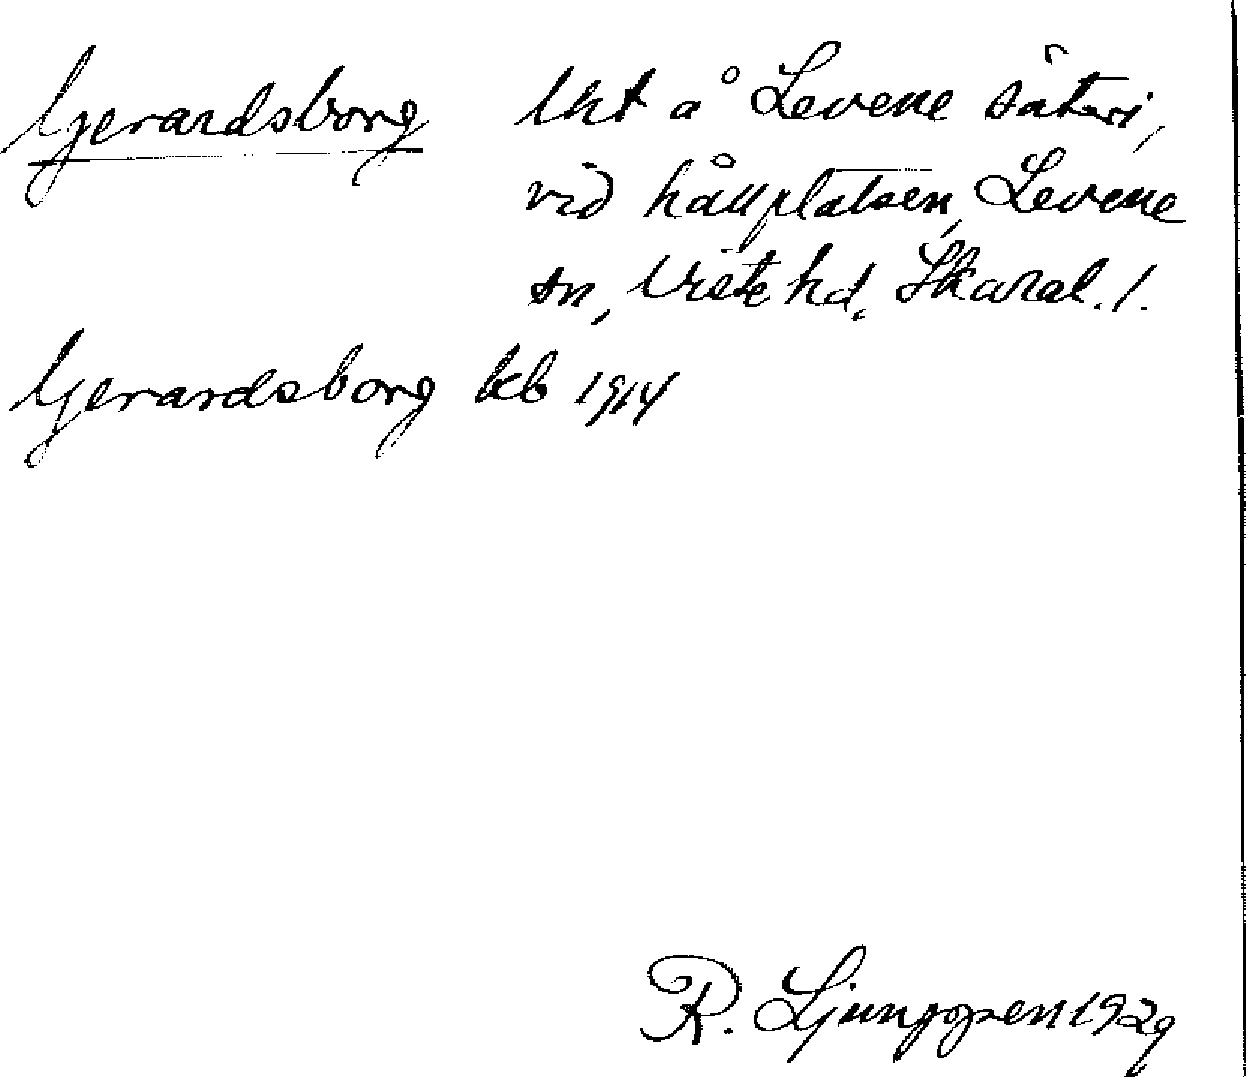 Gerardsborg lht å Levene säteri,
vid hållplatsen, Levene
sn, Viste hd, Skarab. l.
Gerardsborg kb 1914
R. Ljunggren 1929